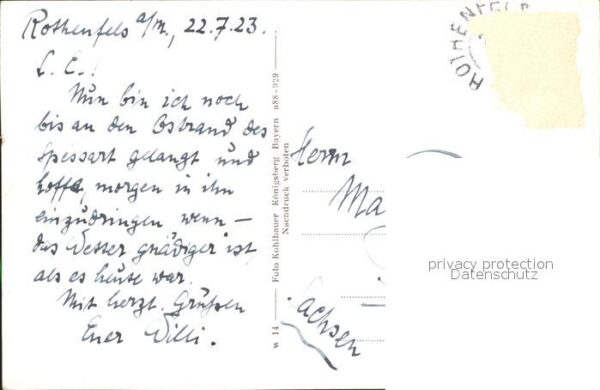 Rothenfels a/M., 22.7.23.
L. E.!
Nun bin ich noch
bis an den Ostrand des
Spessart gelangt und
hoffe, morgen in ihn
einzudringen, wenn –
das Wetter gnädiger ist
als es heute war.
Mit herzl. Grüßen
Euer Willi.
w 14 Foto Kohlbauer Königsberg Bayern a88-929
Nachdruck verboten
ROTHENFELS
Herrn
Ma
Sachsen
privacy protection
Datenschutz